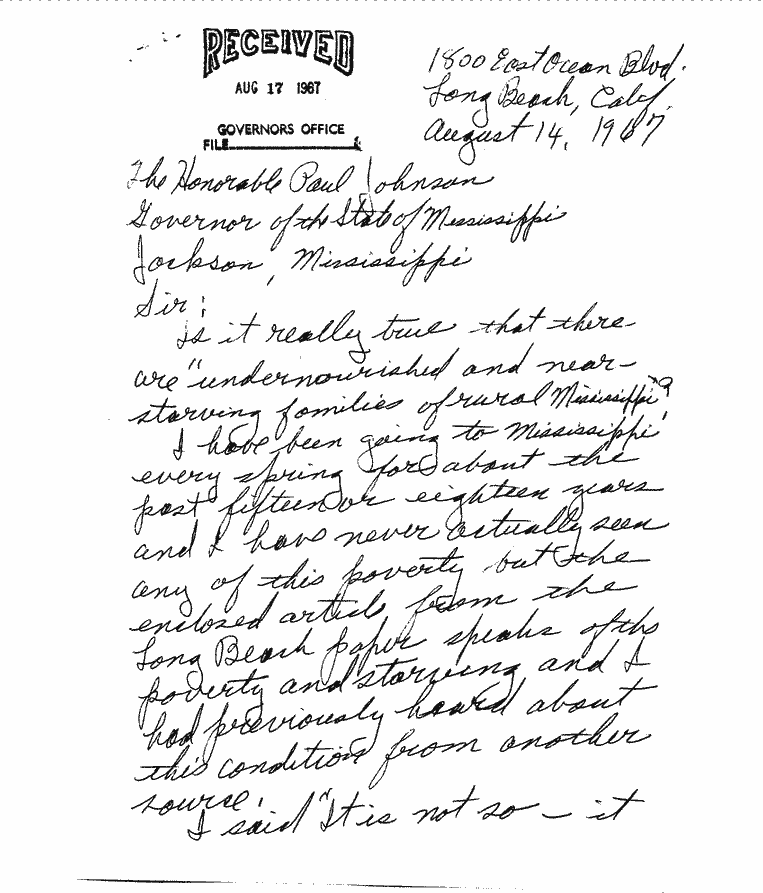 RECEIVED
AUG 17 1967
GOVERNORS OFFICE
FILE
1800 East Ocean Blvd.
Long Beach, Calif.
August 14, 1967
The Honorable Paul Johnson
Governor of the State of Mississippi
Jackson, Mississippi
Sir:
Is it really true that there
are "undernourished and near-
starving families of rural Mississippi"?
I have been going to Mississippi
every spring for about the
past fifteen or eighteen years
and I have never actually seen
any of this poverty but the
enclosed article from the
Long Beach paper speaks of the
poverty and starving and I
had previously heard about
this condition from another
source.
I said "It is not so — it